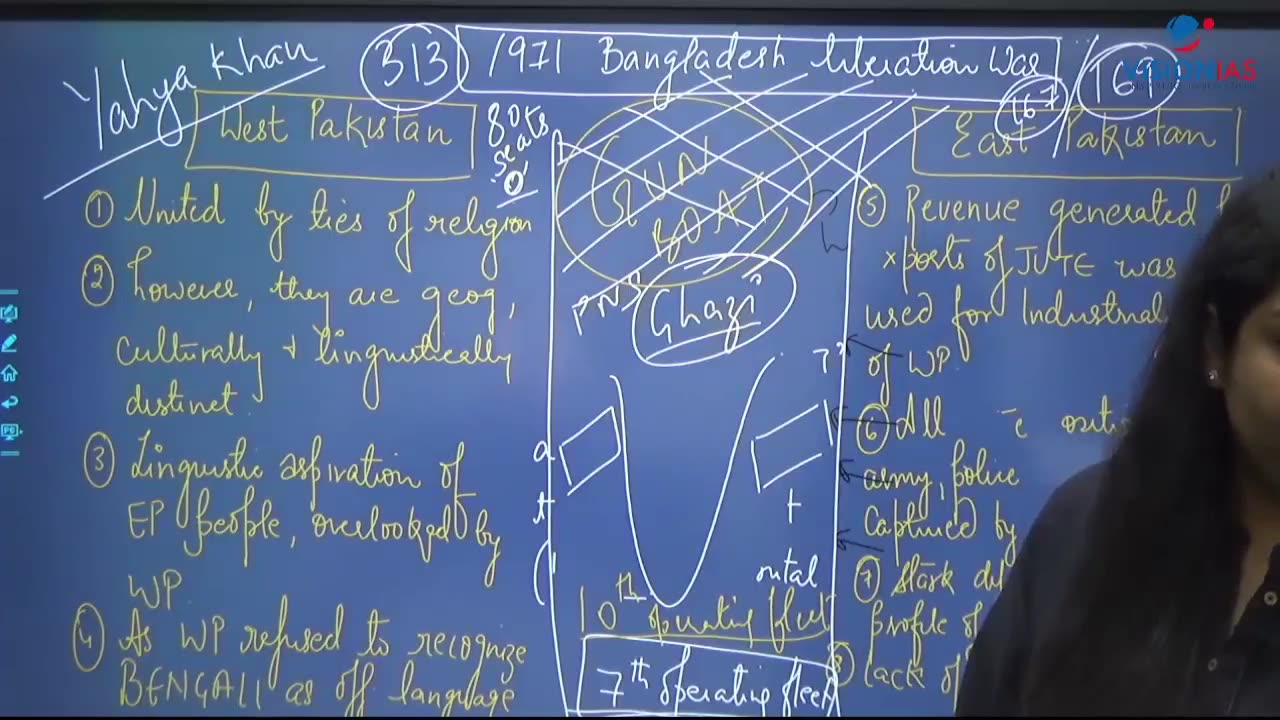 Yahya Khan
313
1971 Bangladesh liberation War
167
167
VISIONIAS
West Pakistan
80ts
seats
East Pakistan
① United by ties of religion
② however, they are geog,
culturally & linguistically
distinct.
③ Linguistic aspiration of
EP people, overlooked by
WP
④ As WP refused to recognize
BENGALI as off language
GUN
BOAT
PNS
Ghazi
10th operating fleet
7th operating fleet
⑤ Revenue generated
xports of JUTE was
used for Industrial
of WP
⑥ All
army, police
Captured by
⑦ Stark
profile of
⑧ lack of